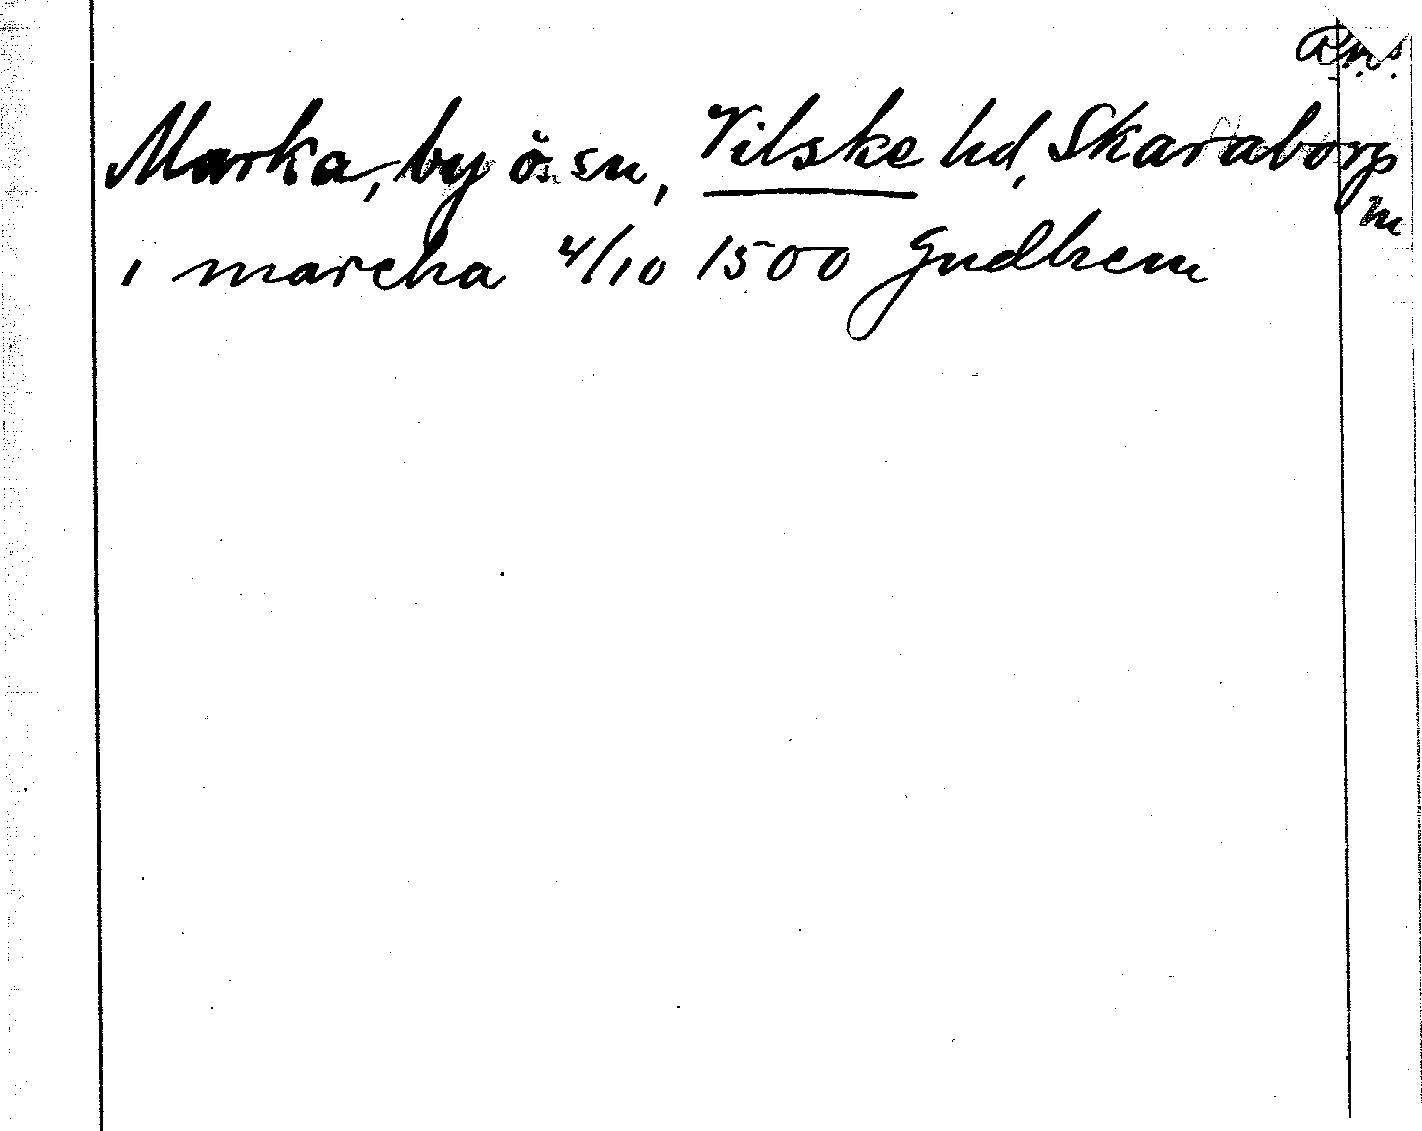 Marka, by o. sn, Vilske hd, Skaraborg
i marcha 4/10 1500 Gudhem